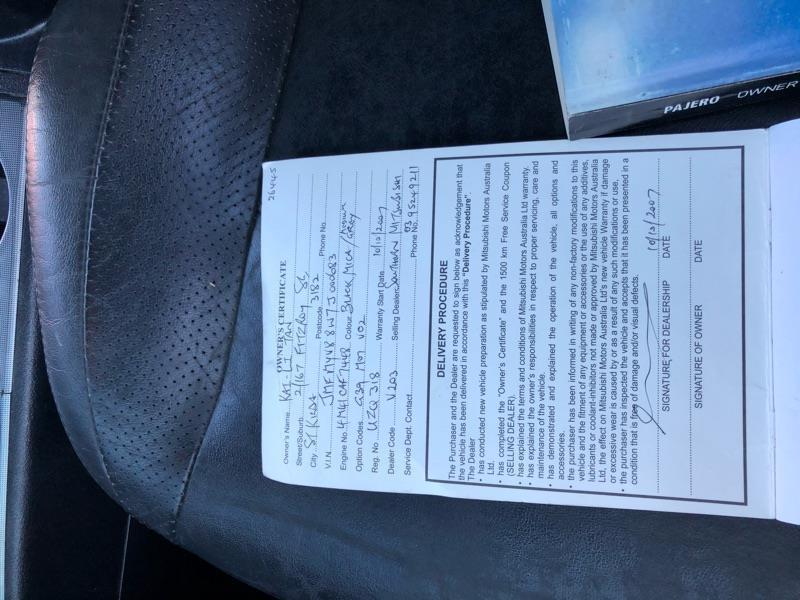 26445
OWNER'S CERTIFICATE
Owner's Name KAI LI TAN
Street/Suburb 2/167 FITZROY ST
City ST KILDA Postcode 3182 Phone No.
V.I.N.
Engine No. 4M41 Colour BLACK MICA /
Option Codes
Reg. No UZQ 318 Warranty Start Date 10/10/2007
Dealer Code V203 Selling Dealer MITSUBISHI
Service Dept. Contact Phone No. 03 9524 9211
DELIVERY PROCEDURE
The Purchaser and the Dealer are requested to sign below as acknowledgement that
the vehicle has been delivered in accordance with this "Delivery Procedure".
The Dealer
• has conducted new vehicle preparation as stipulated by Mitsubishi Motors Australia
Ltd.
• has completed the "Owner's Certificate" and the 1500 km Free Service Coupon
(SELLING DEALER).
• has explained the terms and conditions of Mitsubishi Motors Australia Ltd warranty.
• has explained the owner's responsibilities in respect to proper servicing, care and
maintenance of the vehicle.
• has demonstrated and explained the operation of the vehicle, all options and
accessories.
• the purchaser has been informed in writing of any non-factory modifications to this
vehicle and the fitment of any equipment or accessories or the use of any additives,
lubricants or coolant-inhibitors not made or approved by Mitsubishi Motors Australia
Ltd, the effect on Mitsubishi Motors Australia Ltd's new vehicle Warranty if damage
or excessive wear is caused by or as a result of any such modifications or use,
• the purchaser has inspected the vehicle and accepts that it has been presented in a
condition that is free of damage and/or visual defects.
10/10/2007
SIGNATURE FOR DEALERSHIP DATE
SIGNATURE OF OWNER DATE
PAJERO OWNER